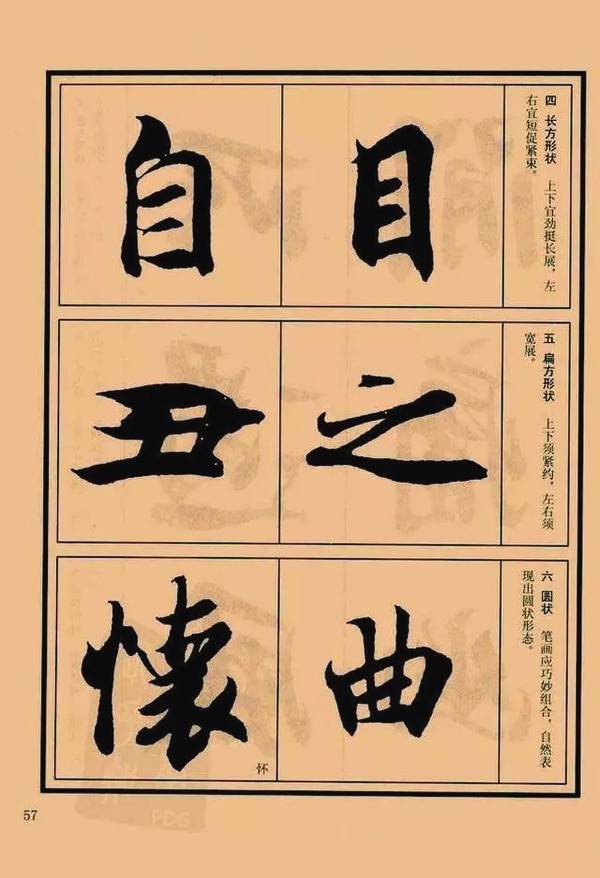 四 长方形状 上下宜劲挺长展，左
右宜短促紧束。
目
自
五 扁方形状 上下须紧约，左右须
宽展。
之
丑
六 圆状 笔画应巧妙组合，自然表
现出圆状形态。
曲
懷
怀
57